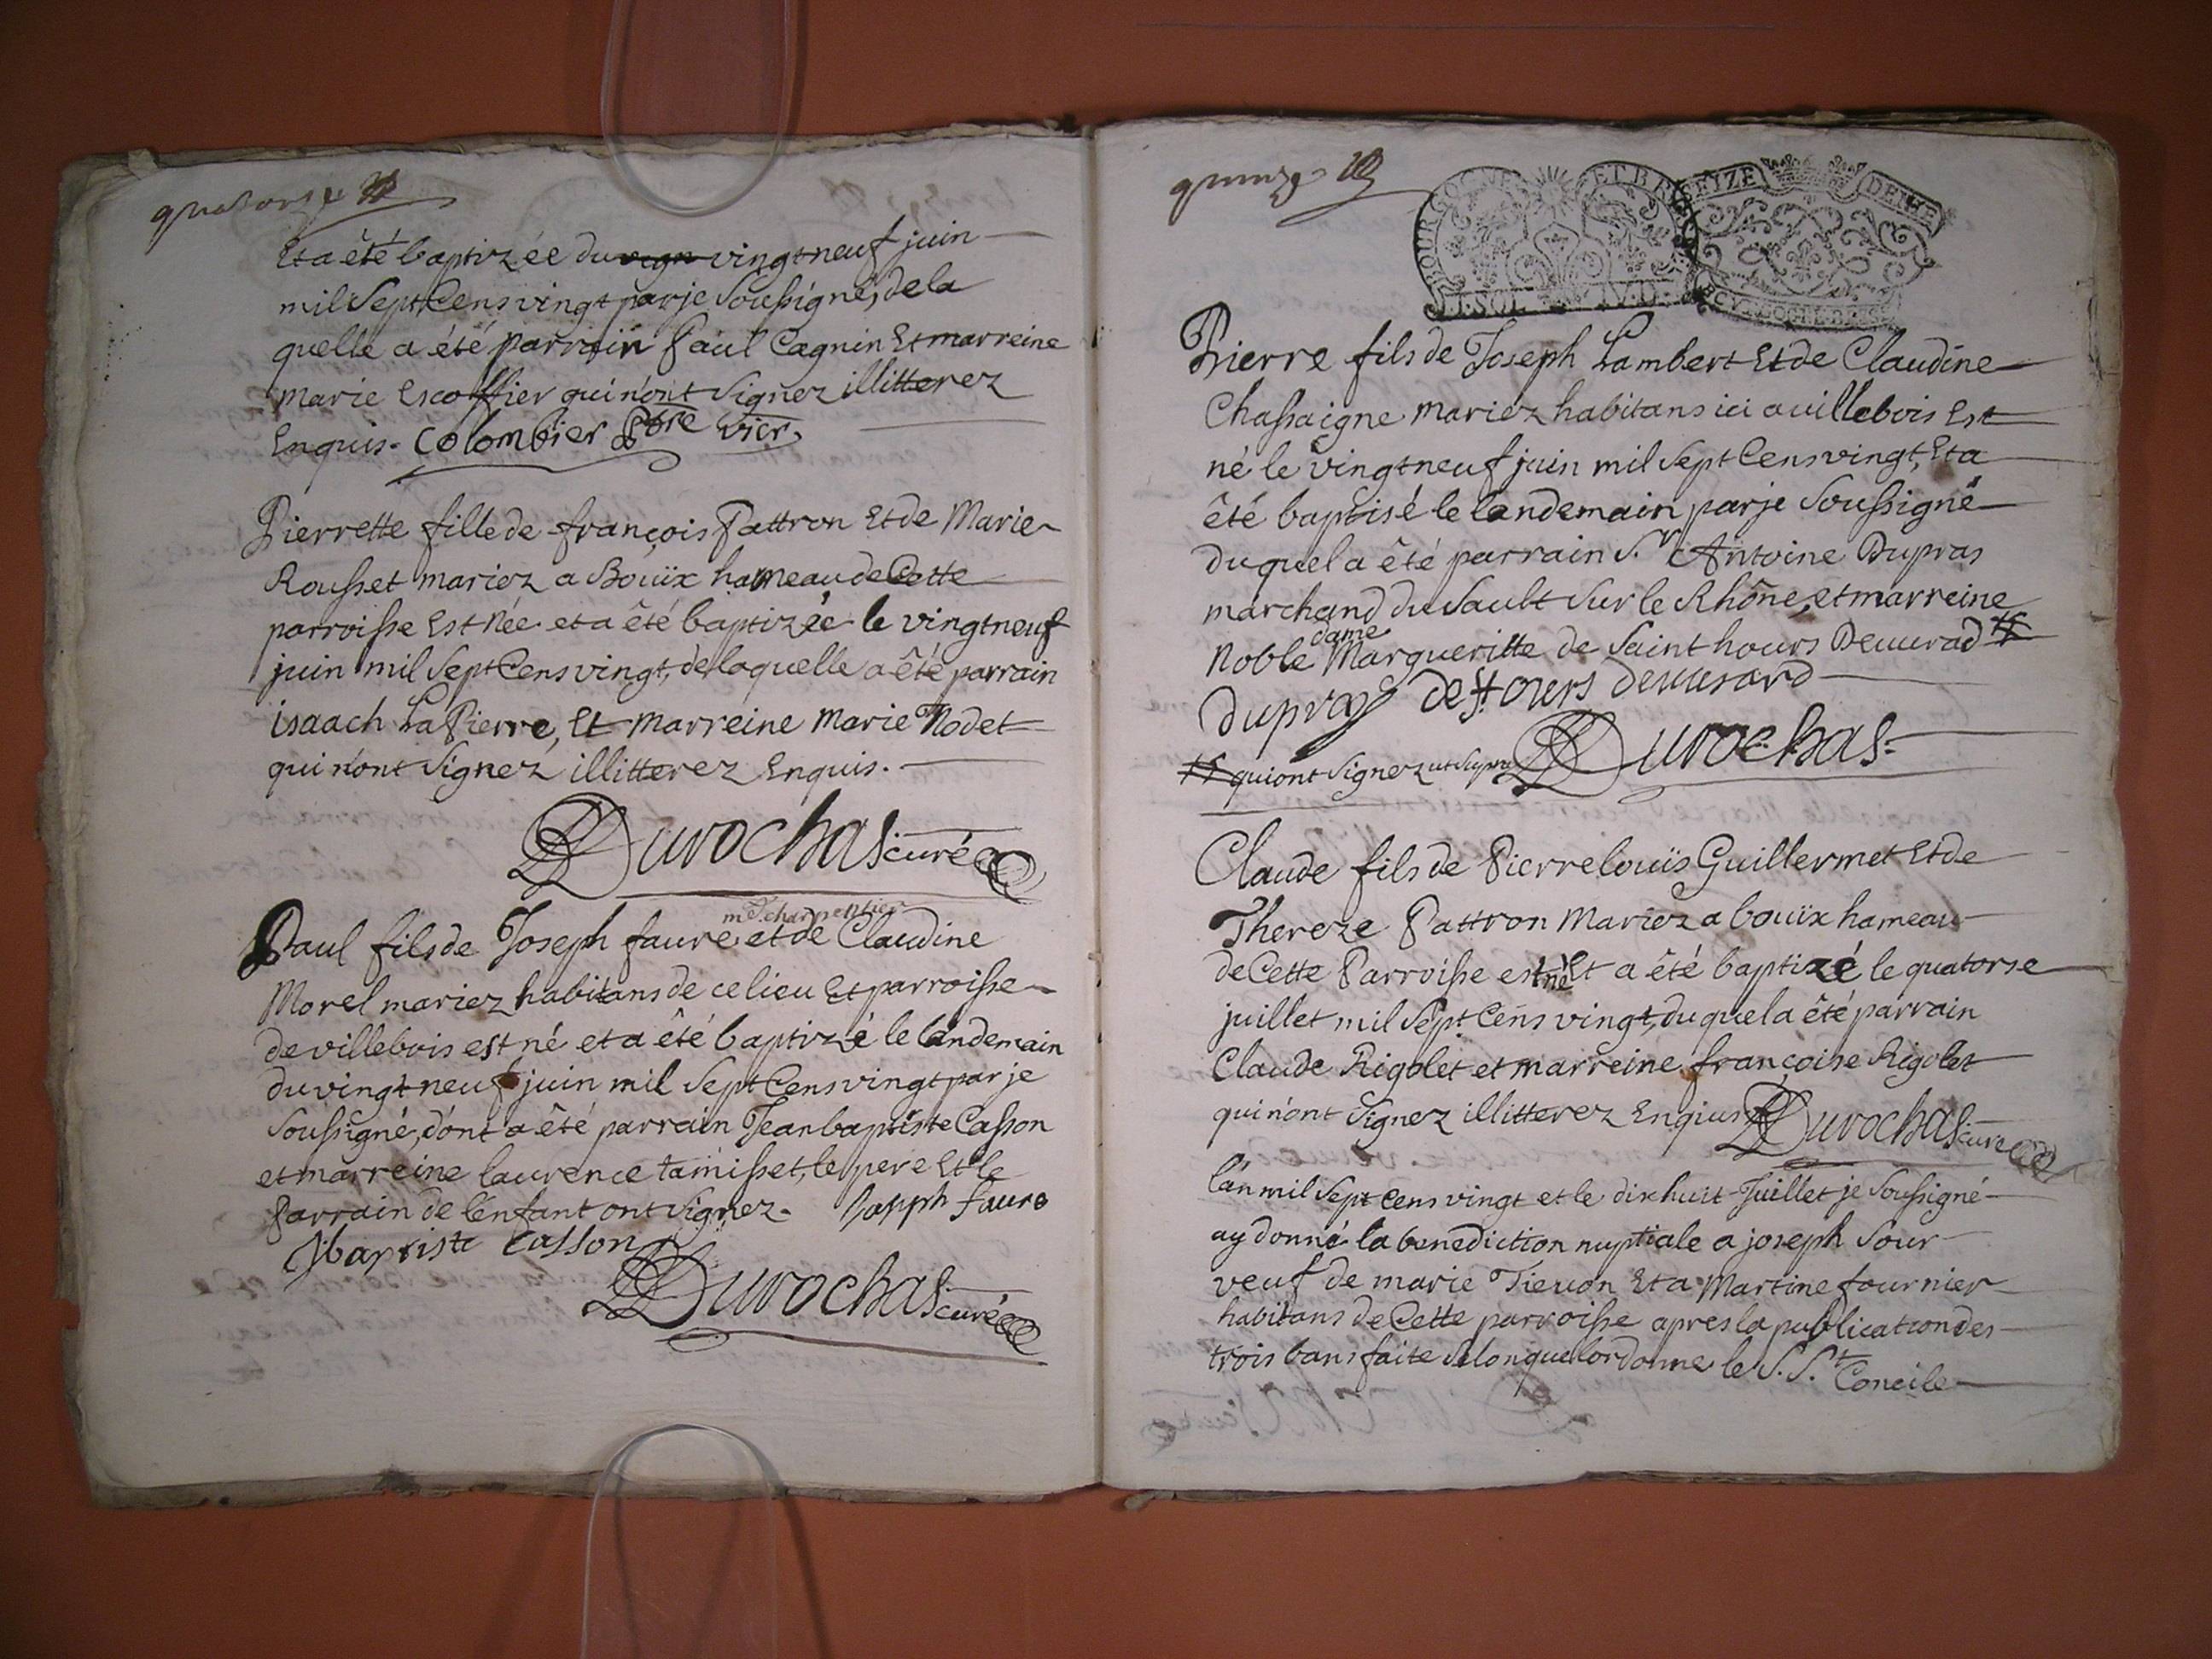 quatorze
Et a été baptizée du vign vingt neuf juin
mil Sept Cens vingt par je Soussigné, de la
quelle a été parrain Paul Cagnin Et marreine
marie Escoffier qui n'ont Signez illitterez
Enquis. Colombier Pbre vicr.
Pierrette fille de françois Pattron Et de Marie
Rousset mariez a Bouïx hameau de Cette
parroisse Est Née et a été baptizée le vingt neuf
juin mil Sept Cens vingt, de laquelle a été parrain
isaach La Pierre, Et marreine Marie Nodet
qui n'ont Signez illitterez Enquis.
Durochas curé
me. charpentier
Paul fils de Joseph faure et de Claudine
Morel mariez habitans de ce lieu Et parroisse
de villebois est né et a été baptizé le landemain
du vingt neuf juin mil Sept Cens vingt par je
Soussigné, dont a été parrain Jean baptiste Casson
et marreine laurence tamisset, le pere Et le
Parrain de l'enfant ont signez. Joseph faure
Jbaptiste Casson
Durochas curé
quinze
BOURGOGNE ET BRE
SEIZE DENIE
Pierre fils de Joseph Lambert Et de Claudine
Chassaigne mariez habitans ici a villebois Est
né le vingt neuf juin mil Sept Cens vingt, Et a
été baptisé le landemain par je Soussigné
du quel a été parrain S.r Antoine Dupras
marchand du Sault Sur le Rhône, et marreine
dame
Noble Margueritte de Saint hours Deuurad
dupras de St. ours deuusard
qui ont Signez ut Supra Durochas
Claude fils de Pierre louïs Guillermet Et de
Thereze Pattron Mariez a bouïx hameau
de Cette Parroisse est né Et a été baptizé le quatorse
juillet mil Sept Cens vingt, du quel a été parrain
Claude Rigolet et marreine françoise Rigolet
qui n'ont Signez illitterez Enquis Durochas curé
l'an mil Sept cens vingt et le dix huit Juillet je Soussigné
ay donné la benediction nuptiale a joseph Sour
veuf de marie Tievon Et a Martine fournier
habitans de Cette parroisse apres la publication des
trois bans faite Selon que l'ordonne le S. St. Concile